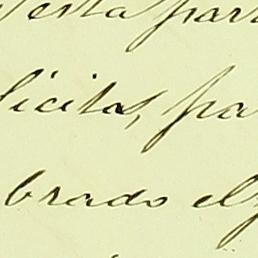 esta par
licita, pa
brado el